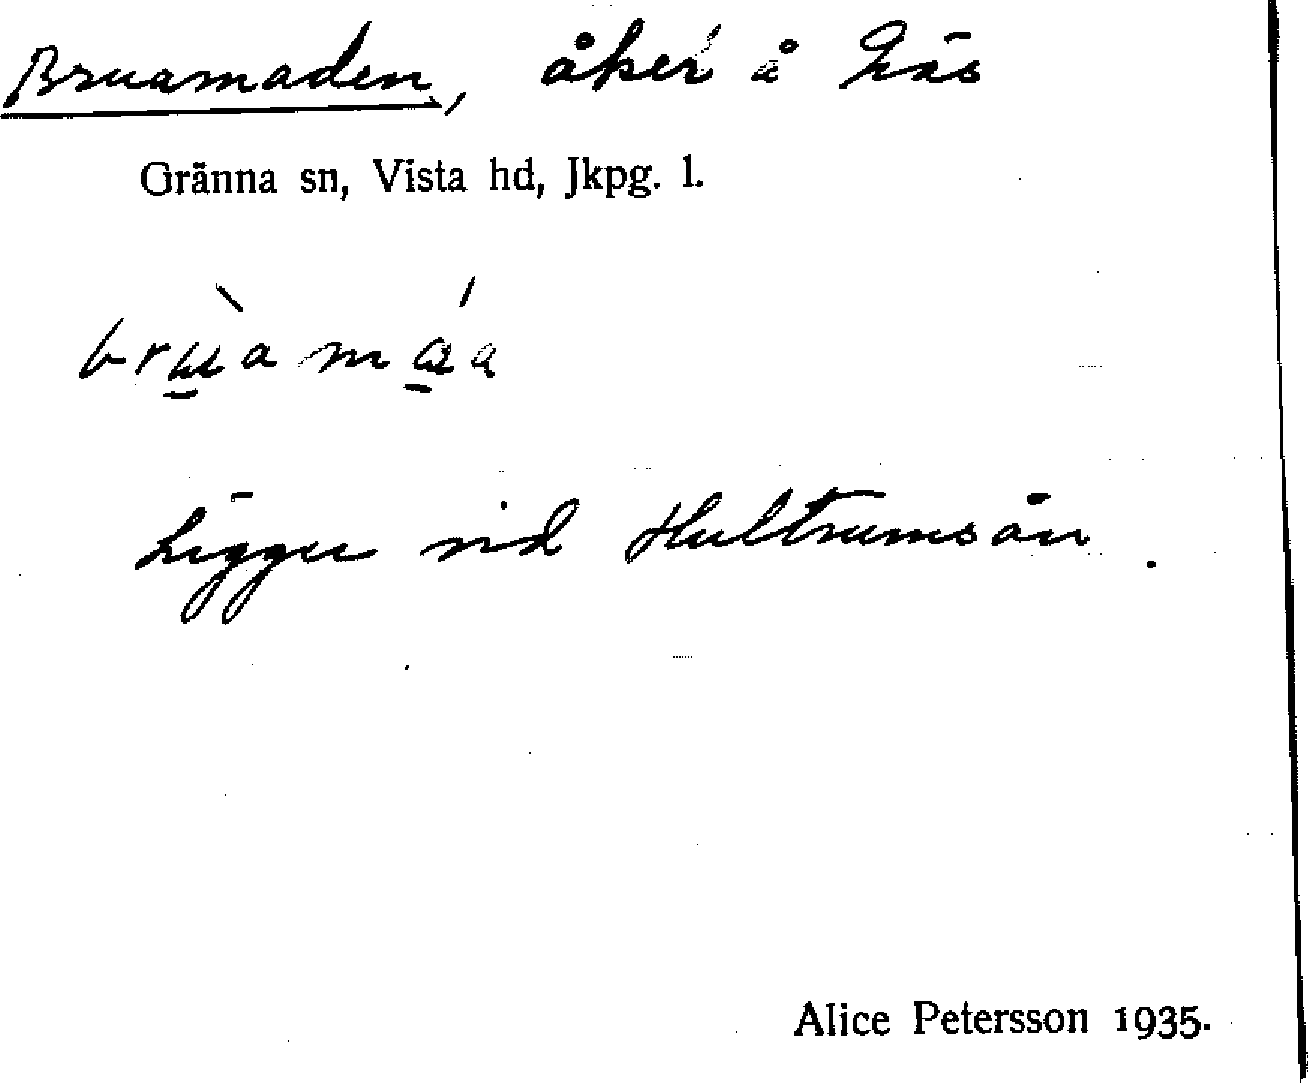 Bruamaden, åker å Näs
Gränna sn, Vista hd, Jkpg. l.
Ligger vid Hultrumsån.
Alice Petersson 1935.